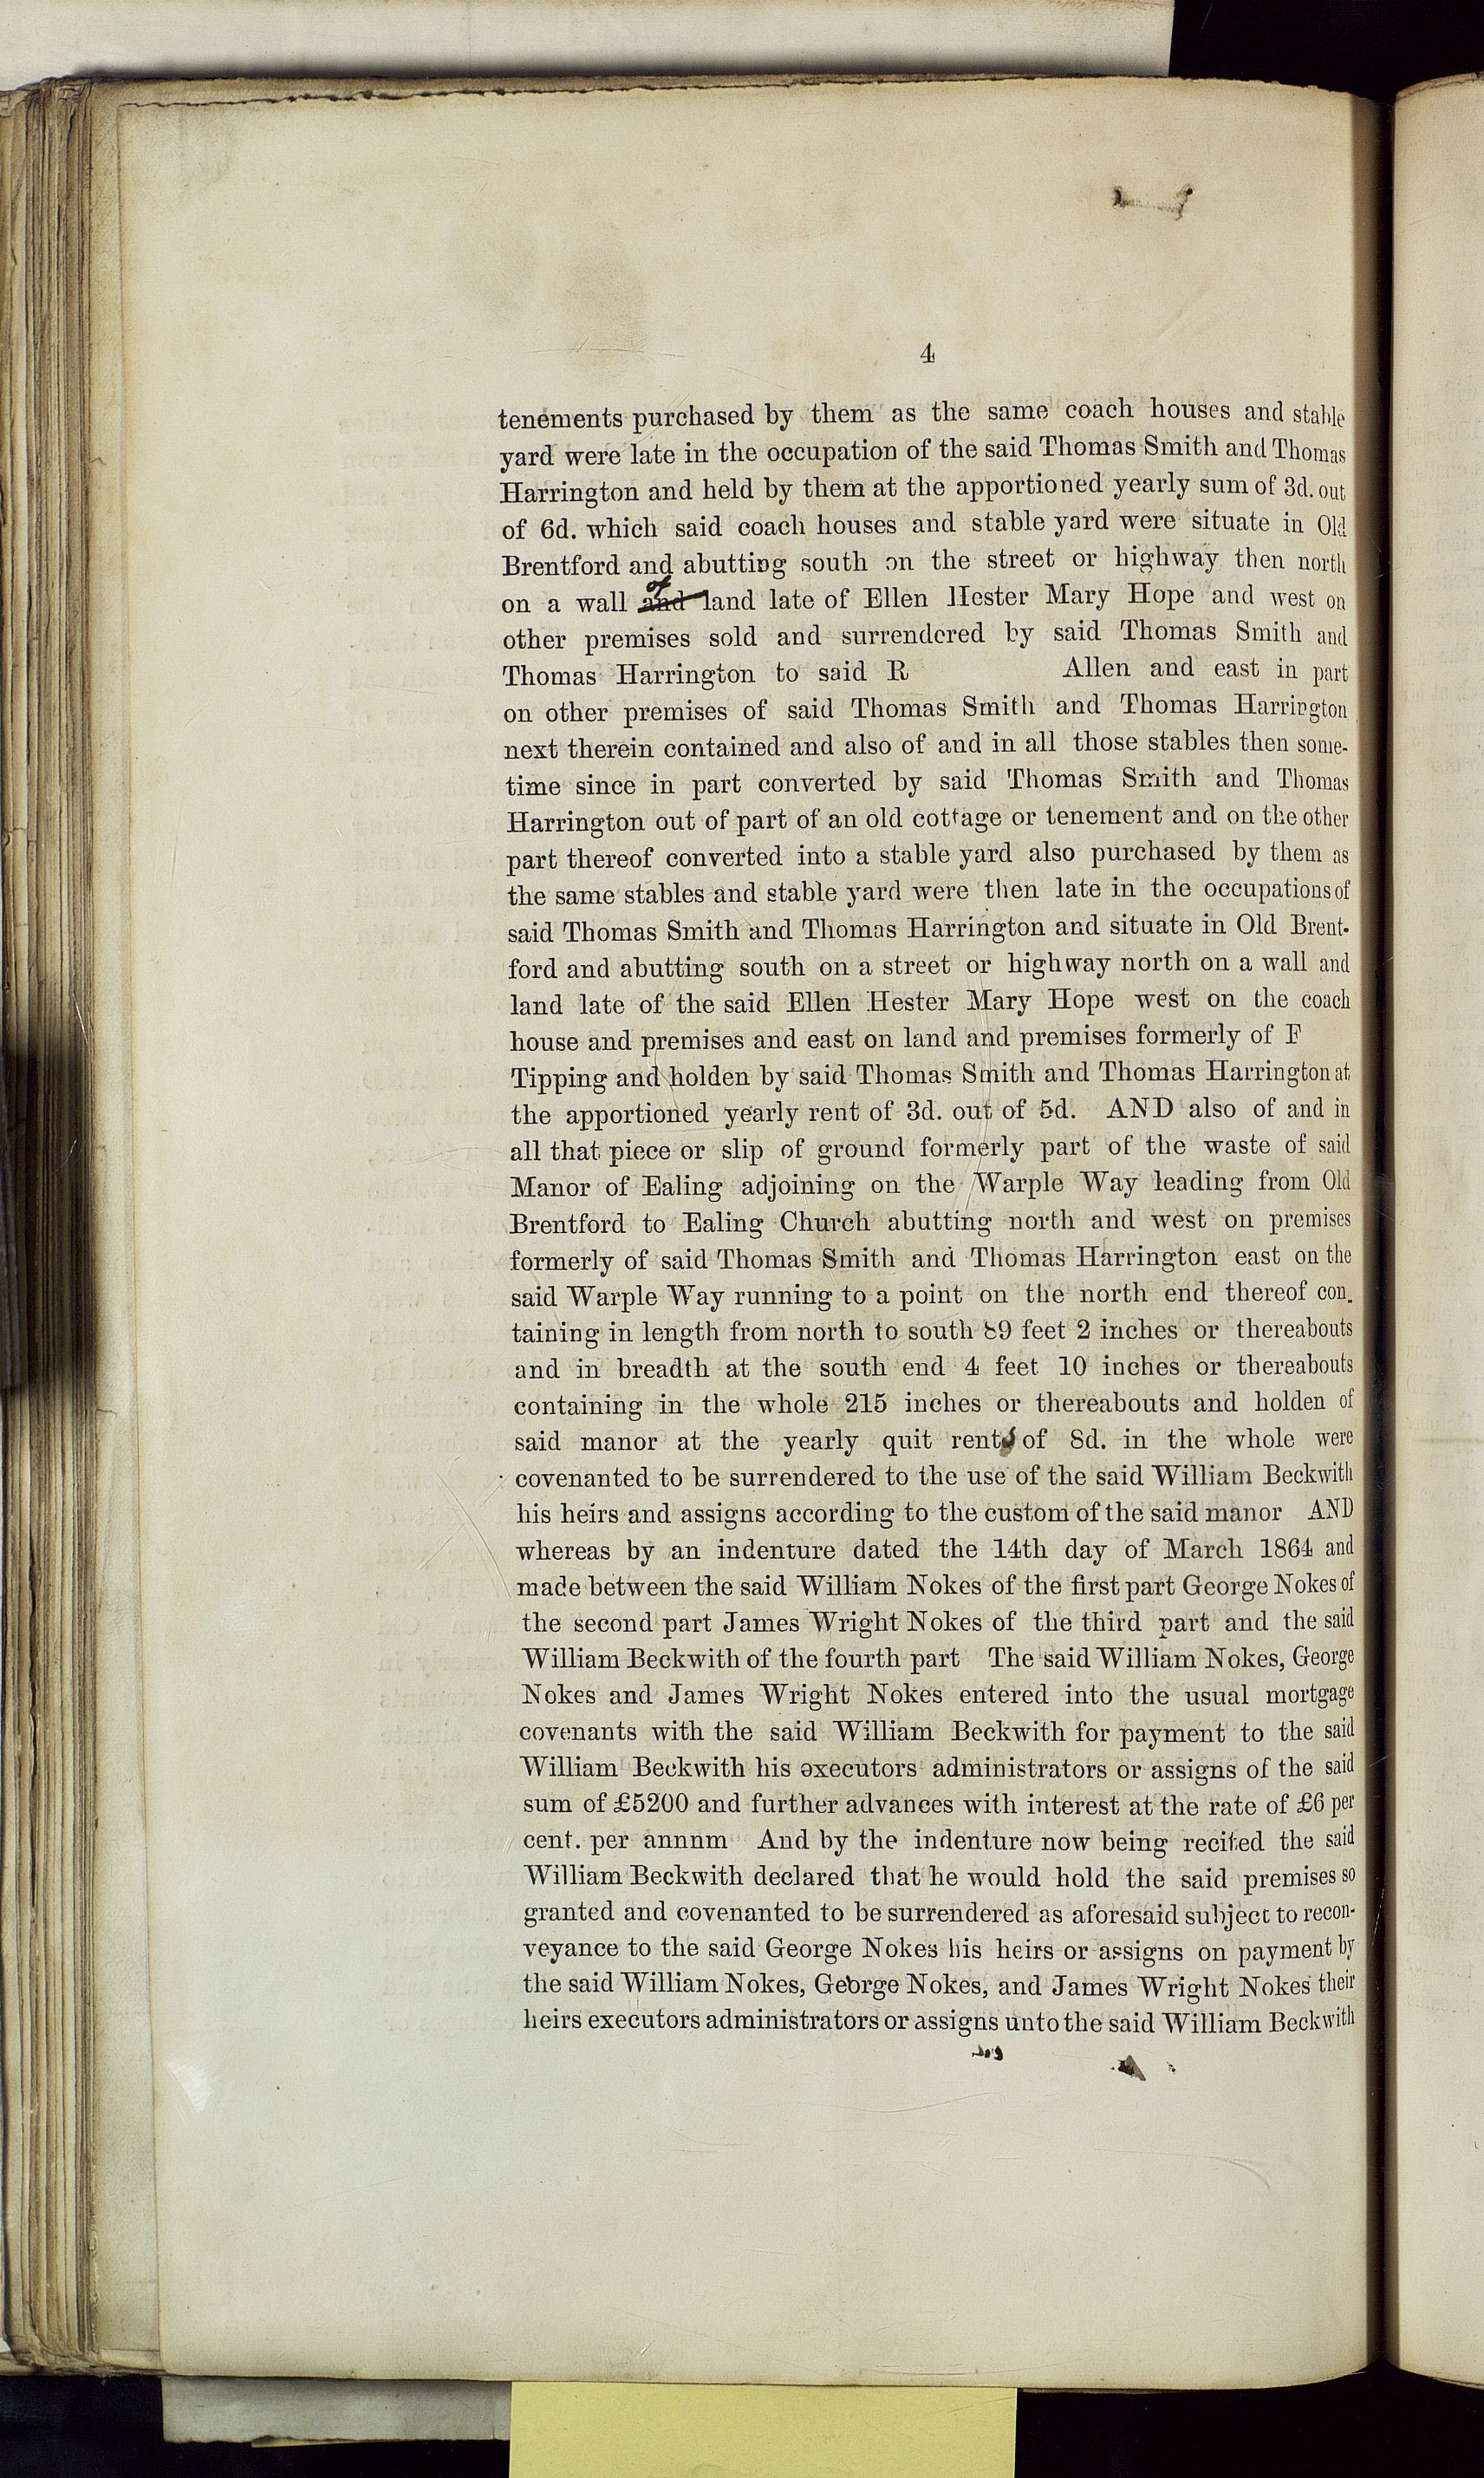 4
tenements purchased by them as the same coach houses and stable
yard were late in the occupation of the said Thomas Smith and Thomas
Harrington and held by them at the apportioned yearly sum of 3d. out
of 6d. which said coach houses and stable yard were situate in Old
Brentford and abutting south on the street or highway then north
of
on a wall and land late of Ellen Hester Mary Hope and west on
other premises sold and surrendered by said Thomas Smith and
Thomas Harrington to said R Allen and east in part
on other premises of said Thomas Smith and Thomas Harrington
next therein contained and also of and in all those stables then some-
time since in part converted by said Thomas Smith and Thomas
Harrington out of part of an old cottage or tenement and on the other
part thereof converted into a stable yard also purchased by them as
the same stables and stable yard were then late in the occupations of
said Thomas Smith and Thomas Harrington and situate in Old Brent-
ford and abutting south on a street or highway north on a wall and
land late of the said Ellen Hester Mary Hope west on the coach
house and premises and east on land and premises formerly of F
Tipping and holden by said Thomas Smith and Thomas Harrington at
the apportioned yearly rent of 3d. out of 5d. AND also of and in
all that piece or slip of ground formerly part of the waste of said
Manor of Ealing adjoining on the Warple Way leading from Old
Brentford to Ealing Church abutting north and west on premises
formerly of said Thomas Smith and Thomas Harrington east on the
said Warple Way running to a point on the north end thereof con-
taining in length from north to south 89 feet 2 inches or thereabouts
and in breadth at the south end 4 feet 10 inches or thereabouts
containing in the whole 215 inches or thereabouts and holden of
said manor at the yearly quit rents of 8d. in the whole were
covenanted to be surrendered to the use of the said William Beckwith
his heirs and assigns according to the custom of the said manor AND
whereas by an indenture dated the 14th day of March 1864 and
made between the said William Nokes of the first part George Nokes of
the second part James Wright Nokes of the third part and the said
William Beckwith of the fourth part The said William Nokes, George
Nokes and James Wright Nokes entered into the usual mortgage
covenants with the said William Beckwith for payment to the said
William Beckwith his executors administrators or assigns of the said
sum of £5200 and further advances with interest at the rate of £6 per
cent. per annnm And by the indenture now being recited the said
William Beckwith declared that he would hold the said premises so
granted and covenanted to be surrendered as aforesaid subject to recon-
veyance to the said George Nokes his heirs or assigns on payment by
the said William Nokes, George Nokes, and James Wright Nokes their
heirs executors administrators or assigns unto the said William Beckwith